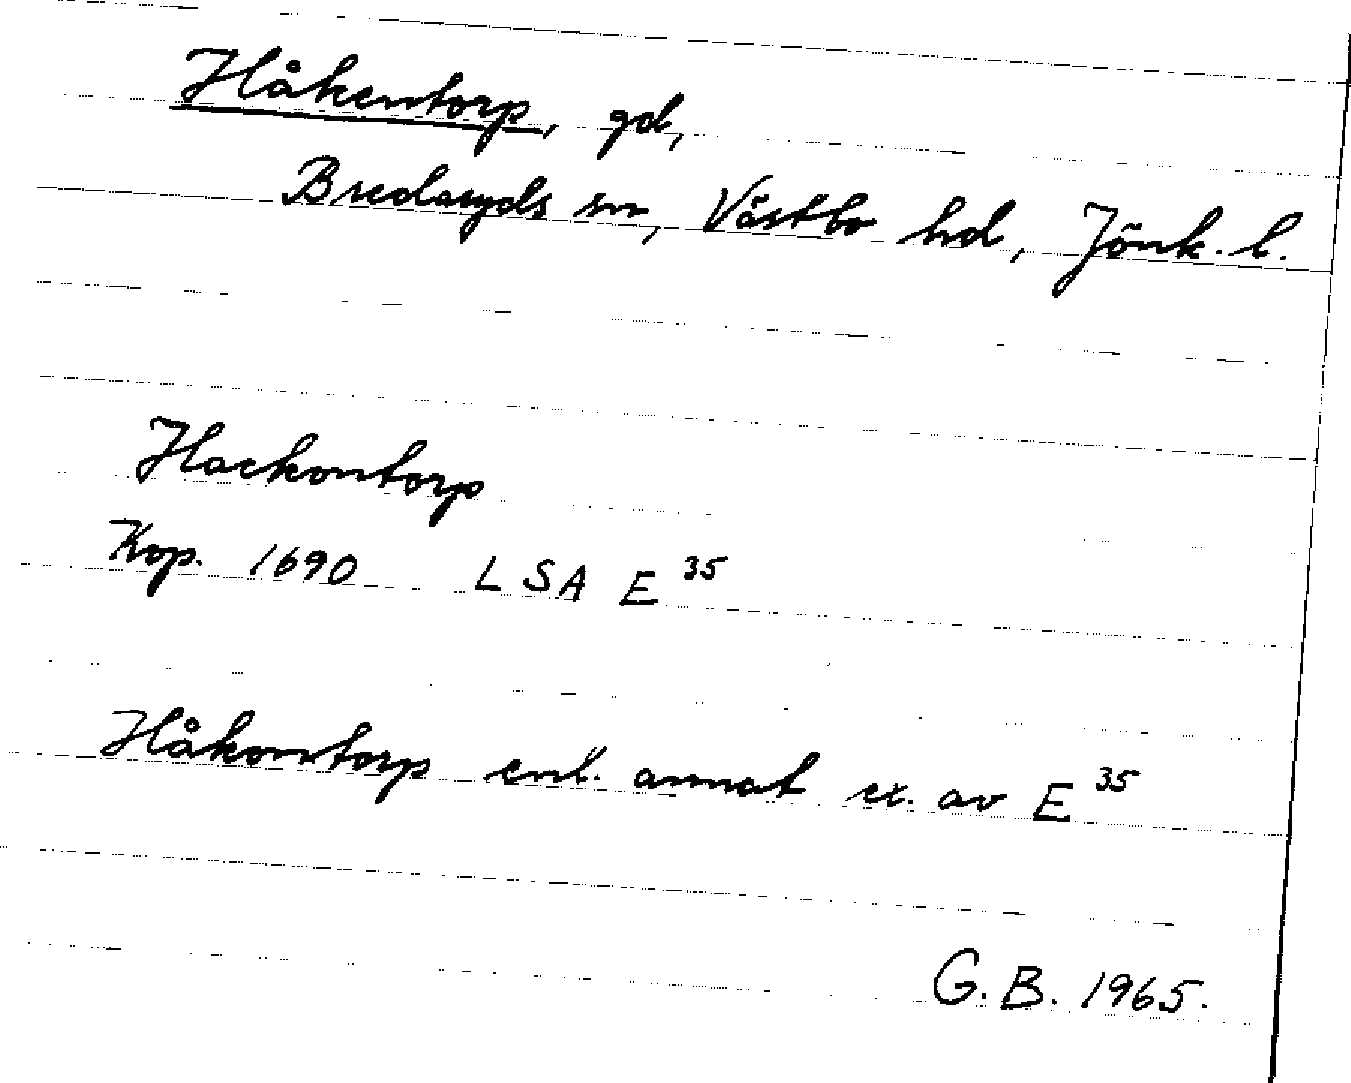 Håkentorp, gd,
Bredaryds sn, Västbo hd, Jönk. l.
Hackontorp
Kop. 1690 LSA E 35
Håkontorp enl. annat ex. av E 35
G. B. 1965.